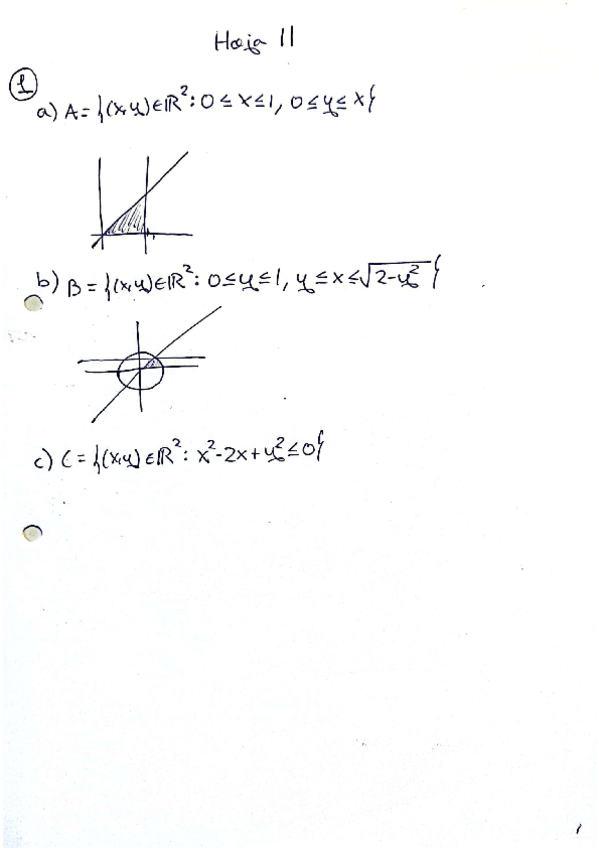 Hoja 11
1
a) A = {(x,y)∈ℝ²: 0 ≤ x ≤ 1, 0 ≤ y ≤ x}
b) B = {(x,y)∈ℝ²: 0 ≤ y ≤ 1, y ≤ x ≤ √(2-y²)}
c) C = {(x,y)∈ℝ²: x²-2x+y² ≤ 0}
1